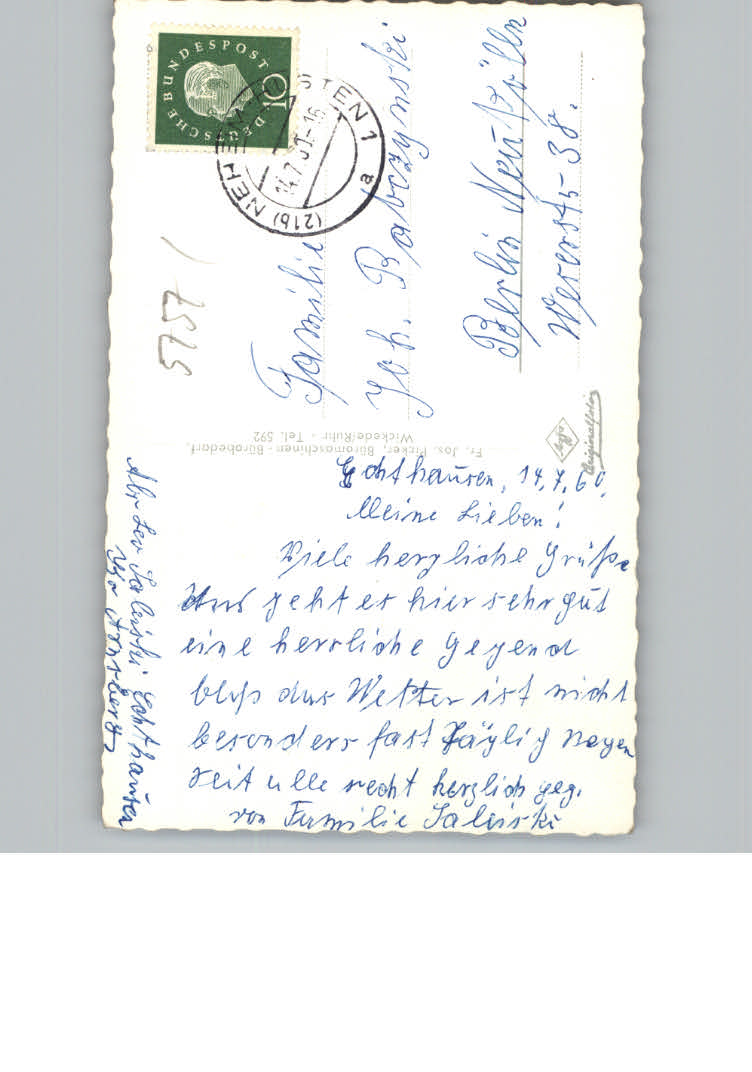 DEUTSCHE BUNDESPOST
10
(21b) NEHEIM-HÜSTEN 1
a
14.7.60-16
5757
Familie
Joh. Babczynski
Berlin Neukölln
Weserstr. 38.
Fr. Jos. Picker, Büromaschinen - Bürobedarf,
Wickede/Ruhr - Tel. 592
Agfa
Originalfoto
Echthausen, 14.7.60.
Meine Lieben!
Viele herzliche Grüße
Uns geht es hier sehr gut
eine herrliche Gegend
bloß das Wetter ist nicht
besonders fast Täglich Regen
Seit alle recht herzlich geg.
von Familie Saleiski
Abs. Leo Saleiski Echthausen
Arnsberg